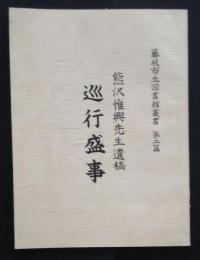 藤枝市立図書館叢書　第二篇
熊沢惟興先生遺稿
巡行盛事